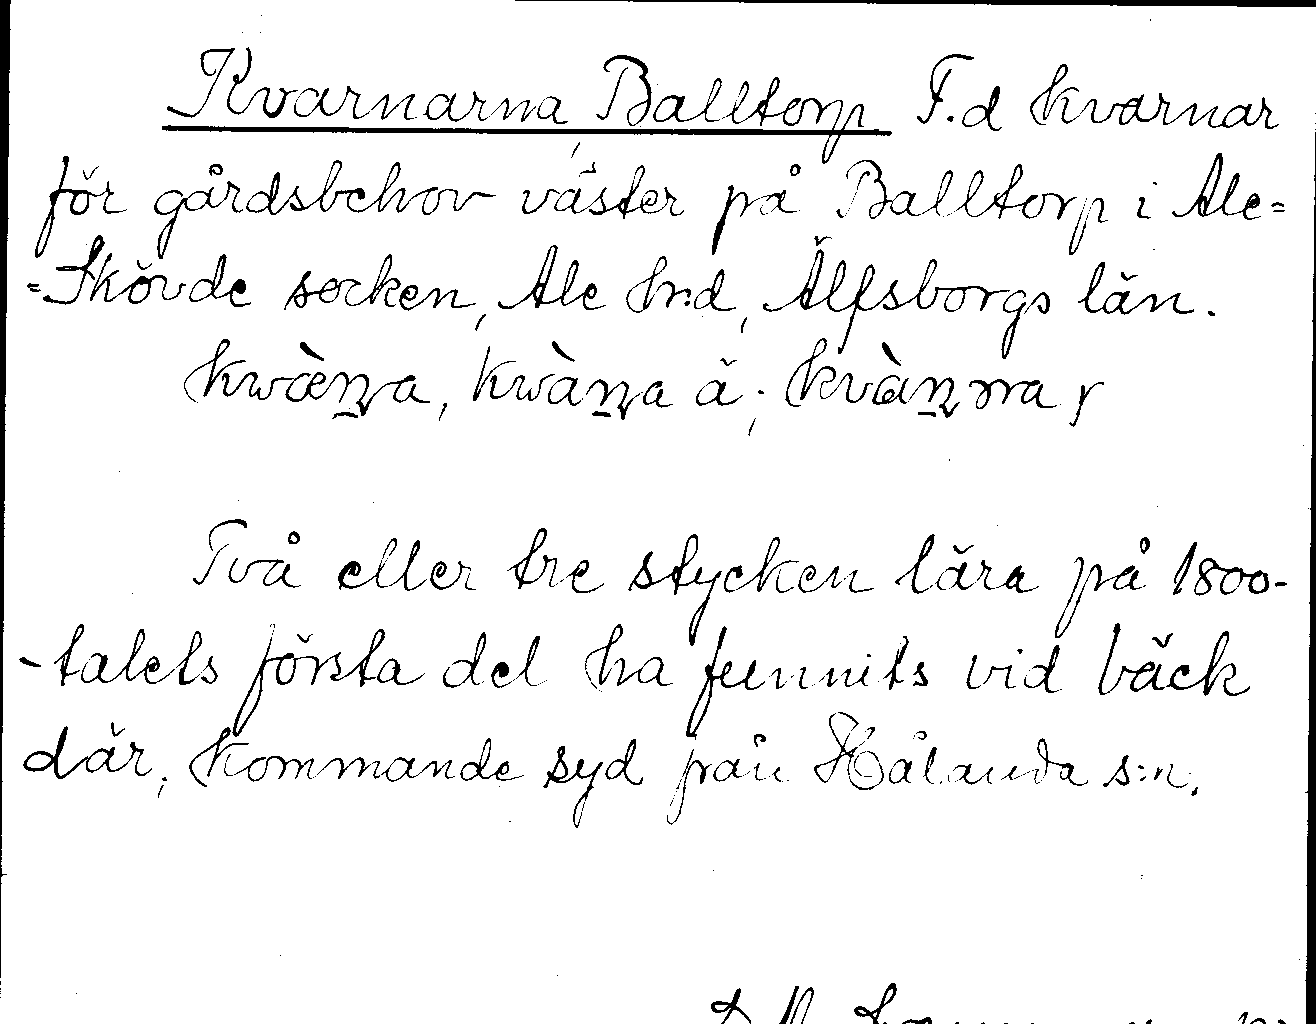 Kvarnarna, Balltorp F.d kvarnar
för gårdsbehov väster på Balltorp i Ale=
=Skövde socken, Ale hr:d, Älfsborgs län.
Två eller tre stycken lära på 1800-
-talets första del ha funnits vid bäck
där, kommande syd från Hålanda s:n.